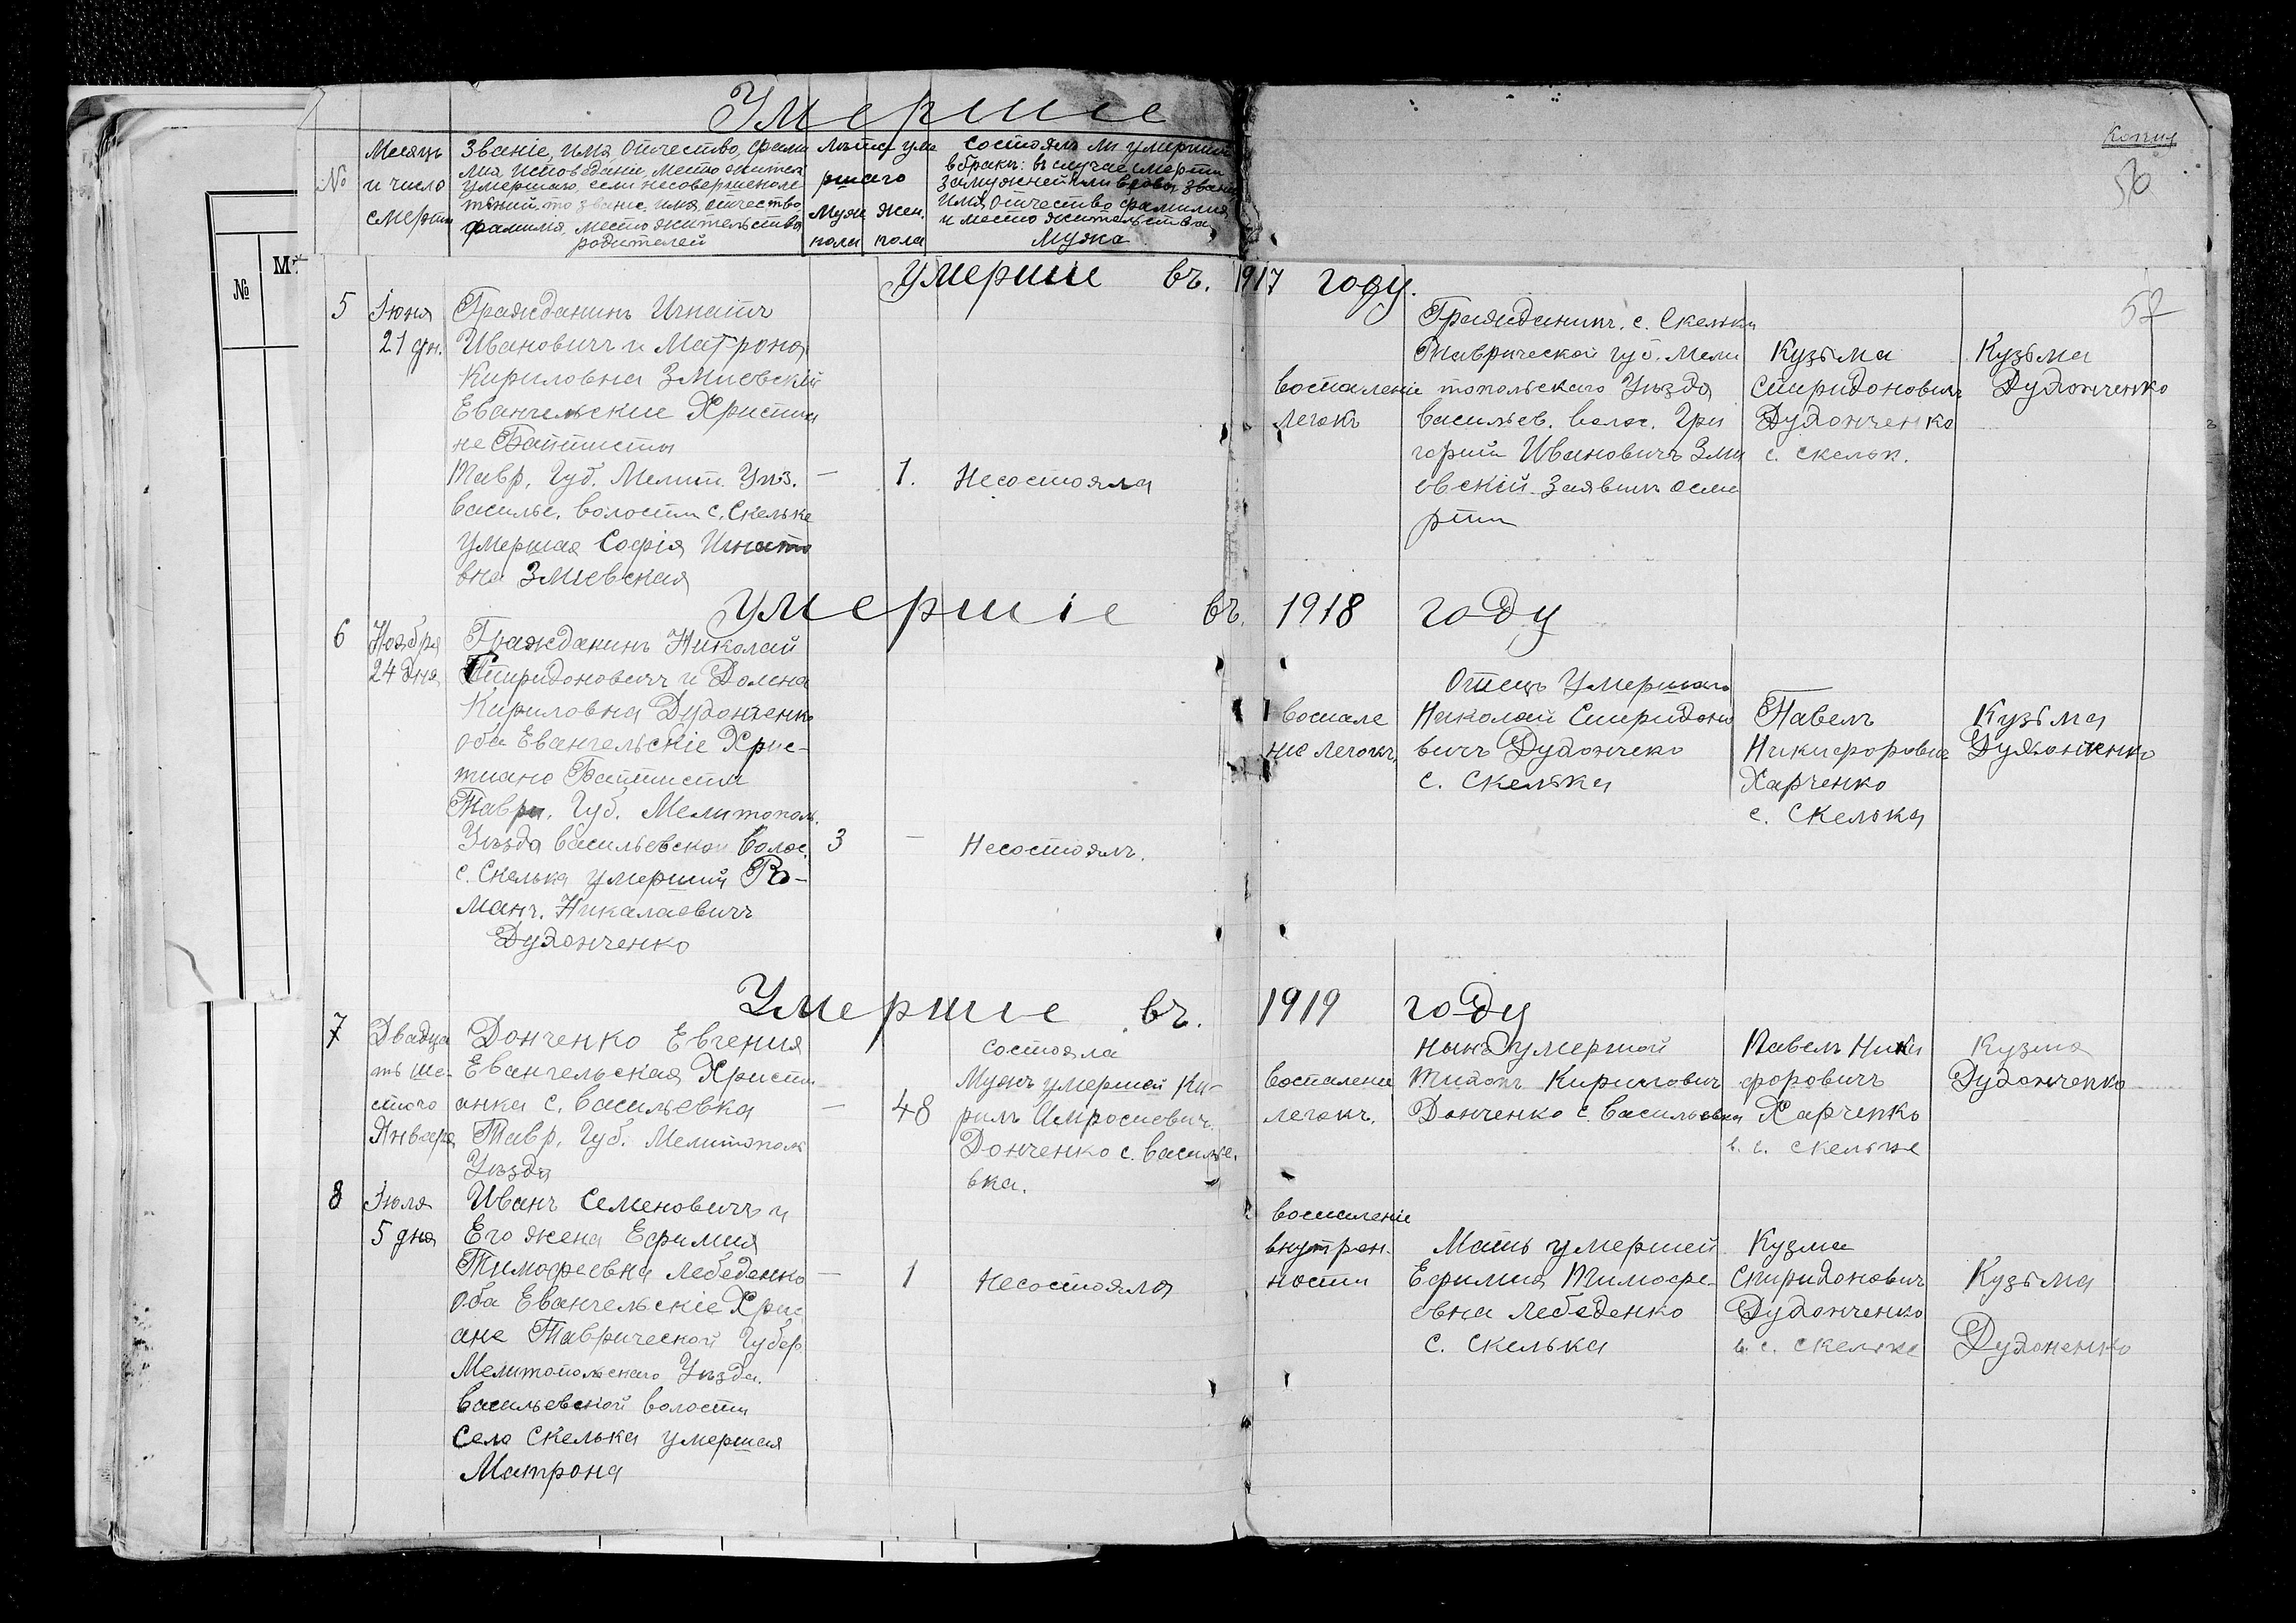 Умершіе
Копия
50
57
№
М
№
Месяцъ
и число
смерти
Званіе, имя, отчество, фами
лия, исповедание, место жител
умершаго, если несовершеноле
тний, то звание, имя, отчество
фамилия, место жительства
родителей
лета уме
ршаго
Муж жен.
пола пола
Состоялъ ли умерший
в браке: въ случае смерти
замужней или вдовы званіе
имя отчество фамилия
и место жительства
Мужа
Умершие въ. 1917 году.
5
Іюня
21 дн.
Гражданинъ Игнатъ
Ивановичъ и Матрона
Кириловна Змиевскій
Евангельские Христиа
не Баптисты
Тавр. Губ. Мелит. Уѣз.
Василье. волости с. Скельке
умершая Софія Игнато
вна Змиевская
—
1.
Несостояла
воспаленіе
легокъ
Гражданинъ. с. Скелька
Таврической губ. Мели
топольскаго Уѣзда
Васильев. волос. Гри
горий Ивановичъ Зми
евскій заявилъ осме
рти
Кузьма
Спиридоновичъ
Дудонченко
с. Скельк.
Кузьма
Дудонченко
Умершіе въ. 1918 году
6
Ноября
24 дня
Гражданинъ Николай
Спиридоновичъ и Домена
Кириловна Дудонченко
оба Евангельскіе Хрис-
тиано Баптисты
Таври. Губ. Мелитополь.
Уѣзда Васильевской Волос.
с. Скелька умерший Ро-
манъ. Николаевичъ
Дудонченко
3
—
Несостоялъ.
воспале
ние легокъ,
Отецъ Умершаго
Николай Спиридоно
вичъ Дудончеко
с. Скелька
Павелъ
Никифоровичъ
Харченко
с. Скелька
Кузьма
Дудонченко
Умершие въ. 1919 году
7
Двадца
ть ше-
стого
Января
Донченко Евгения
Евангельская Христи
анка с. Васильевка
Тавр. Губ. Мелитополь
Уѣзда
—
48
состояла
Мужъ умершей Ки-
рилъ Амросиевич.
Донченко с. Василье.
вка.
Воспаление
легокъ.
нынъ умершой
Тихонъ Кириловичъ
Донченко с. Васильевка
Павелъ Ники
форовичъ
Харченко
в. с. Скельке
Кузма
Дудонченко
8
Іюля
5 дня
Иванъ Семеновичъ и
Его жена Ефимия
Тимофеевна Лебеденко
Оба Евангельскіе Хрис
ане Таврической Губер.
Мелитопольскаго Уѣзда.
Васильевской волости
Село Скелька умершая
Матрона
—
1
Несостояла
воспаленіе
внутрен.
ности
Мать умершей
Ефимия Тимофе-
евна Лебеденко
с. Скелька
Кузма
Спиридоновичъ
Дудонченко
в. с. Скельке
Кузьма
Дудоненко